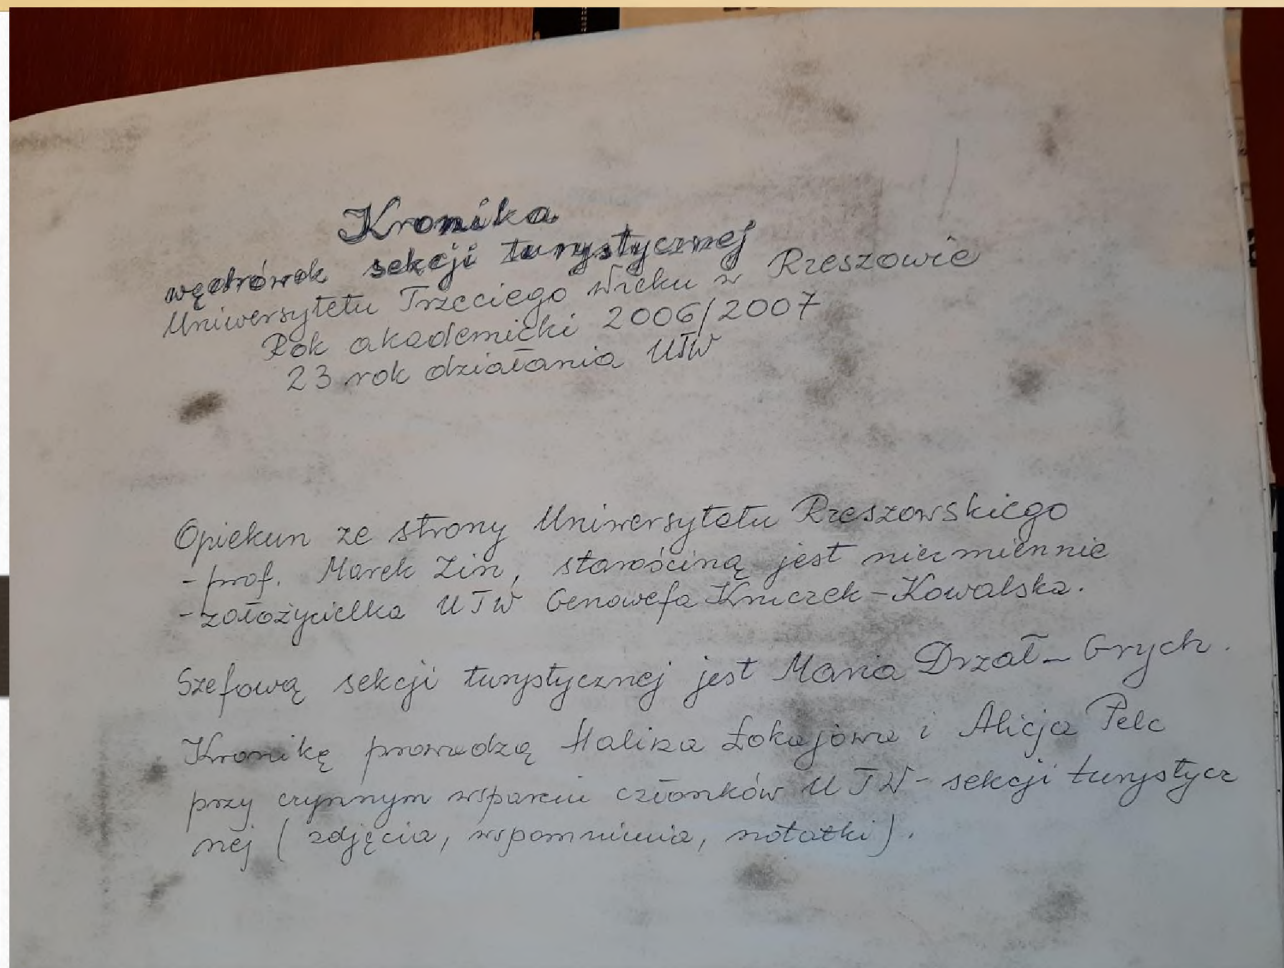 Kronika
wędrówek sekcji turystycznej
Uniwersytetu Trzeciego Wieku w Rzeszowie
Rok akademicki 2006/2007
23 rok działania UTW
Opiekun ze strony Uniwersytetu Rzeszowskiego
- prof. Marek Zin, starościną jest niezmiennie
- założycielka UTW Genowefa Kruczek-Kowalska.
Szefową sekcji turystycznej jest Maria Drzał-Grych.
Kronikę prowadzą Halina Łokajowa i Alicja Pelc
przy czynnym wsparciu członków UTW - sekcji turystycz
nej (zdjęcia, wspomnienia, notatki).